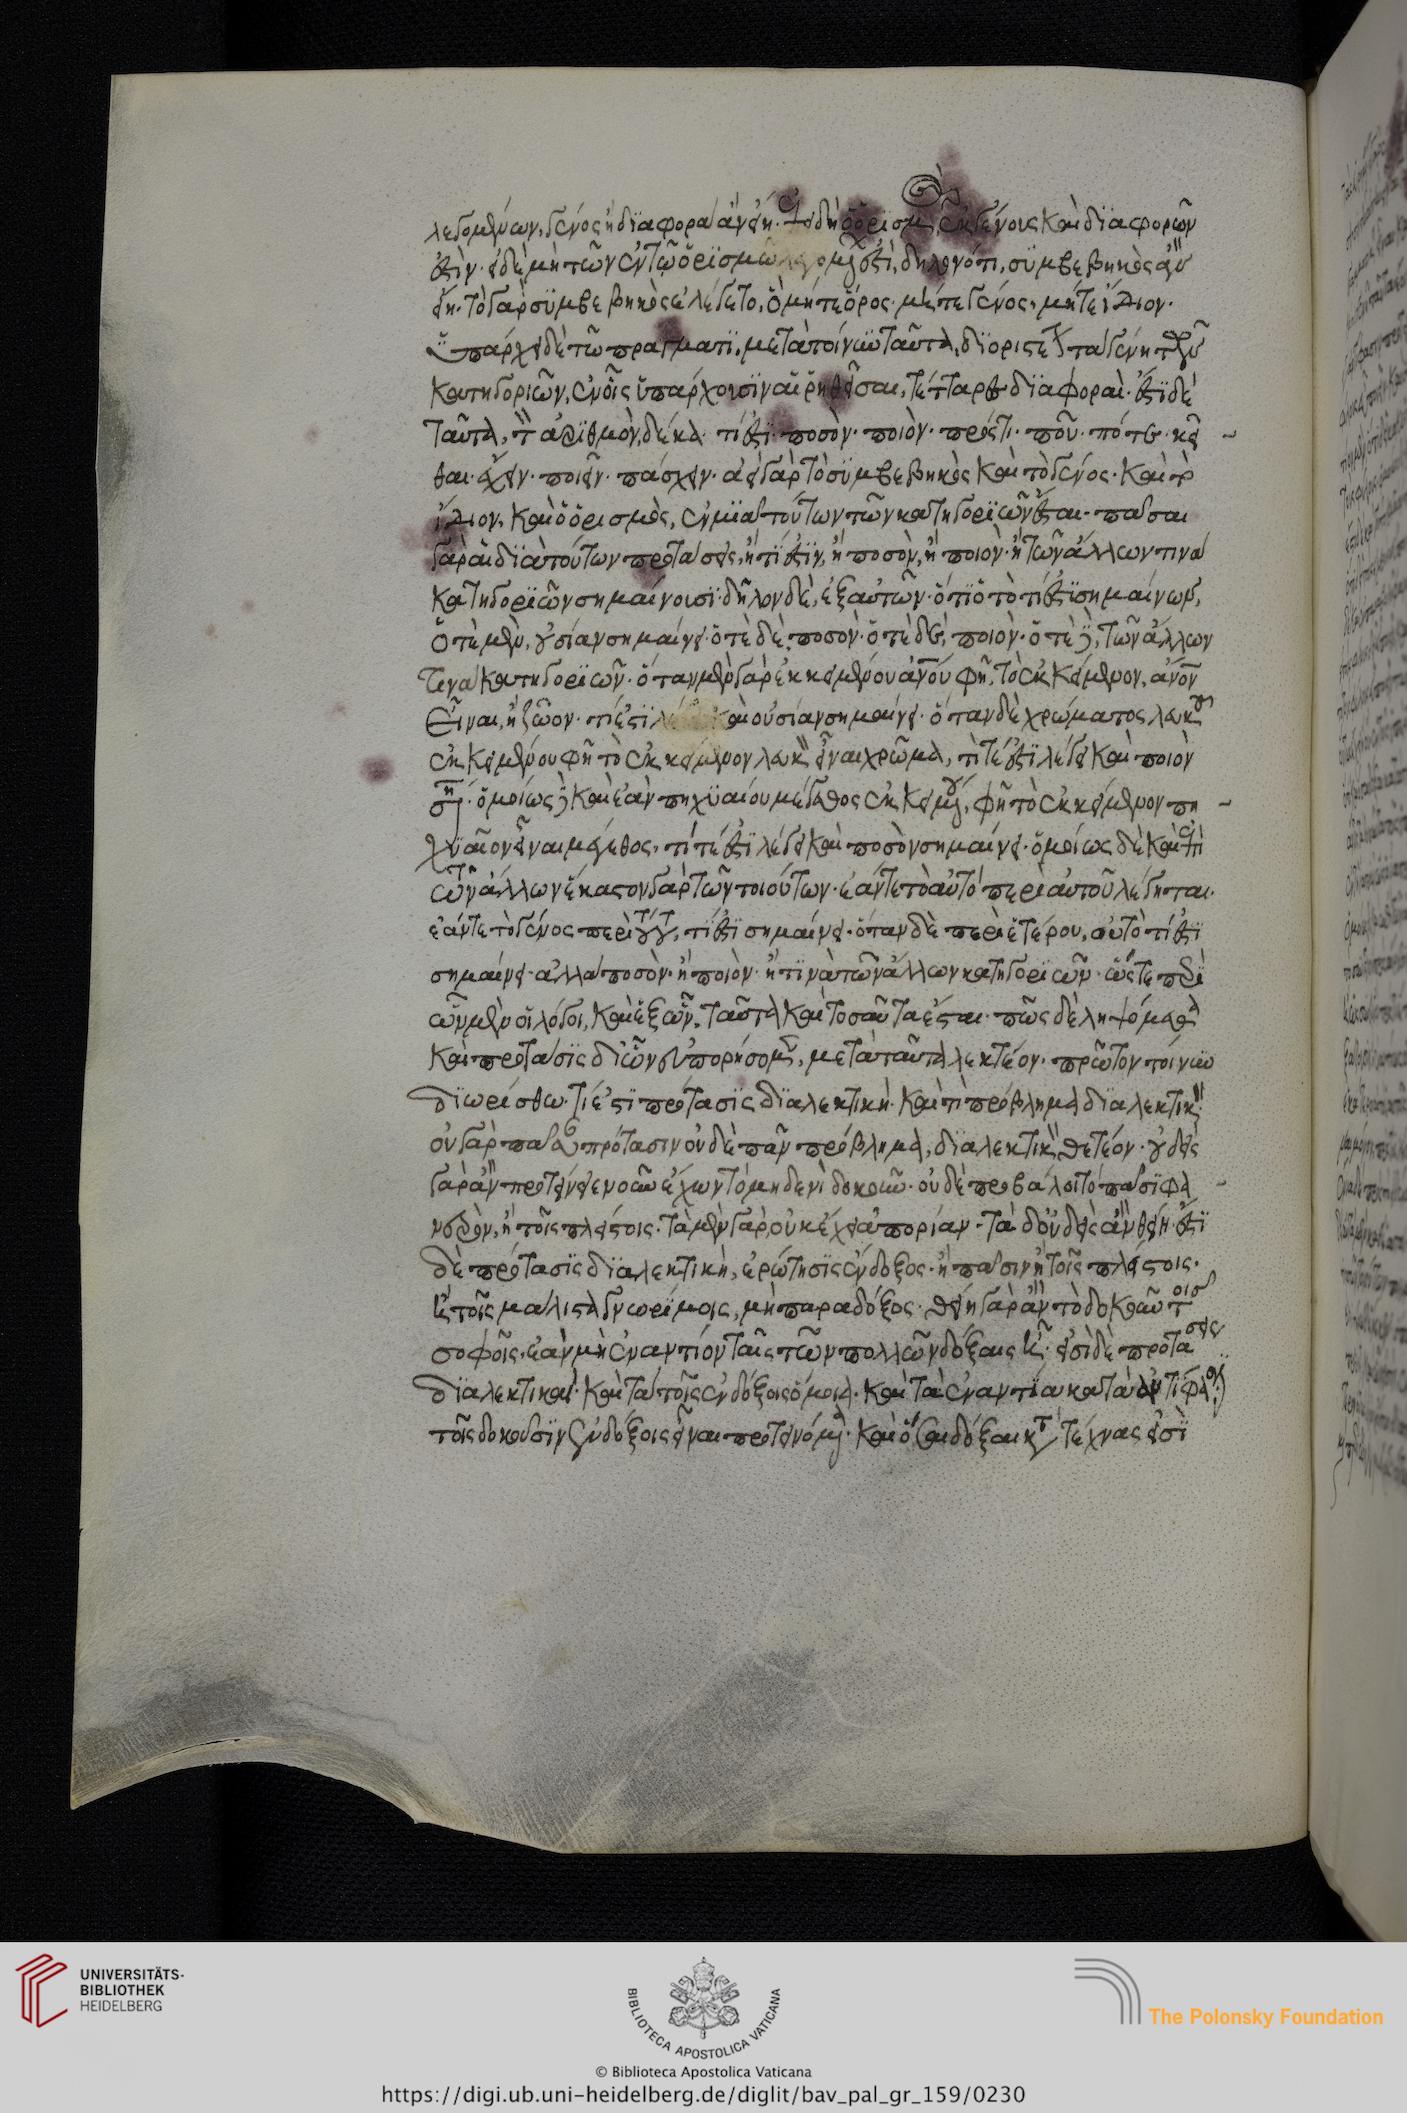 λεγομένων, γένος ἢ διαφορὰ ἂν εἴη. ἐπειδὴ ὁ ὁρισμὸς, ἐκ γένους καὶ διαφορῶν
ἐστὶν. εἰ δὲ μὴ τῶν ἐν τῷ ὁρισμῷ λεγομένων ἐστὶ, δηλονότι, συμβεβηκὸς ἂν
εἴη. τὸ γὰρ συμβεβηκὸς ἐλέγετο, ὃ μήτε ὅρος. μήτε γένος, μήτε ἴδιον.
ὑπάρχει δὲ τῷ πράγματι, μετὰ τοίνυν ταῦτα, διορίσασθαι τὰ γένη τῶν
κατηγοριῶν, ἐν οἷς ὑπάρχουσιν αἱ ῥηθεῖσαι, τέτταρες διαφοραί. ἔστι δὲ
ταῦτα, τὸν ἀριθμὸν, δέκα. τί ἐστι. ποσὸν. ποιὸν. πρός τι. ποῦ. πότε. κεῖ
σθαι. ἔχειν. ποιεῖν. πάσχειν. ἀεὶ γὰρ τὸ συμβεβηκὸς καὶ τὸ γένος. καὶ τὸ
ἴδιον, καὶ ὁ ὁρισμὸς, ἐν μιᾷ τούτων τῶν κατηγοριῶν ἔσται. πᾶσαι
γὰρ αἱ διὰ τούτων προτάσεις, ἢ τί ἐστιν, ἢ ποσὸν, ἢ ποιὸν. ἢ τῶν ἄλλων τινὰ
κατηγοριῶν σημαίνουσι. δῆλον δὲ, ἐξ αὐτῶν. ὅτι ὁ τὸ τί ἐστι σημαίνων,
ὁτὲ μὲν, οὐσίαν σημαίνει. ὁτὲ δὲ, ποσὸν. ὁτὲ δὲ, ποιὸν. ὁτὲ δὲ, τῶν ἄλλων
τινὰ κατηγοριῶν. ὅταν μὲν γὰρ ἐκκειμένου ἀνου φῇ, τὸ ἐκκείμενον, ἀνον
εἶναι, ἢ ζῷον. τί ἐστι λέγει καὶ οὐσίαν σημαίνει. ὅταν δὲ χρώματος λευκοῦ
ἐκκειμένου φῇ τὸ ἐκκείμενον λευκὸν εἶναι χρῶμα, τί τέ ἐστι λέγει καὶ ποιὸν
σημ. ὁμοίως δὲ καὶ ἐὰν πηχυαίου μεγέθους ἐκκειμένου, φῇ τὸ ἐκκείμενον πη
χυαῖον εἶναι μέγεθος, τί τέ ἐστι λέγει καὶ ποσὸν σημαίνει. ὁμοίως δὲ καὶ ἐπὶ
τῶν ἄλλων. ἕκαστον γὰρ τῶν τοιούτων. ἐάν τε τὸ αὐτὸ περὶ αὐτοῦ λέγηται.
ἐάν τε τὸ γένος περὶ τούτου, τί ἐστι σημαίνει. ὅταν δὲ περὶ ἑτέρου, οὐ τὸ τί ἐστι
σημαίνει. ἀλλὰ ποσὸν. ἢ ποιὸν. ἤ τινα τῶν ἄλλων κατηγοριῶν. ὥστε περὶ
ὧν μὲν οἱ λόγοι, καὶ ἐξ ὧν, ταῦτα καὶ τοσαῦτα ἔσται. πῶς δὲ ληψόμεθα
καὶ προτάσεις δι' ὧν εὐπορήσομεν, μετὰ ταῦτα λεκτέον. πρῶτον τοίνυν
διωρίσθω. τί ἐστι πρότασις διαλεκτική. καὶ τί πρόβλημα διαλεκτικὸν
οὐ γὰρ πᾶσαν πρότασιν οὐδὲ πᾶν πρόβλημα, διαλεκτικὸν θετέον. οὐδεὶς
γὰρ ἂν προτείνειε νοῦν ἔχων τὸ μηδενὶ δοκοῦν. οὐδὲ προβάλοι τὸ πᾶσι φα
νερὸν, ἢ τοῖς πλείστοις. τὰ μὲν γὰρ, οὐκ ἔχει ἀπορίαν. τὰ δ' οὐδεὶς ἂν θείη. ἔστι
δὲ πρότασις διαλεκτικὴ, ἐρώτησις ἔνδοξος. ἢ πᾶσιν ἢ τοῖς πλείστοις.
καὶ τοῖς μάλιστα γνωρίμοις, μὴ παράδοξος. θείη γὰρ ἂν τὸ δοκοῦν τοῖς
σοφοῖς, ἐὰν μὴ ἐναντίον ταῖς τῶν πολλῶν δόξαις ᾖ. εἰσὶ δὲ προτάσεις
διαλεκτικαὶ. καὶ τὰ τοῖς ἐνδόξοις ὅμοια. καὶ τὰ ἐναντία κατὰ ἀντίφασιν
τοῖς δοκοῦσιν ἐνδόξοις εἶναι προτεινόμενα. καὶ ὅσαι δόξαι κατὰ τέχνας εἰσὶ
UNIVERSITÄTS-
BIBLIOTHEK
HEIDELBERG
BIBLIOTECA APOSTOLICA VATICANA
The Polonsky Foundation
© Biblioteca Apostolica Vaticana
https://digi.ub.uni-heidelberg.de/diglit/bav_pal_gr_159/0230